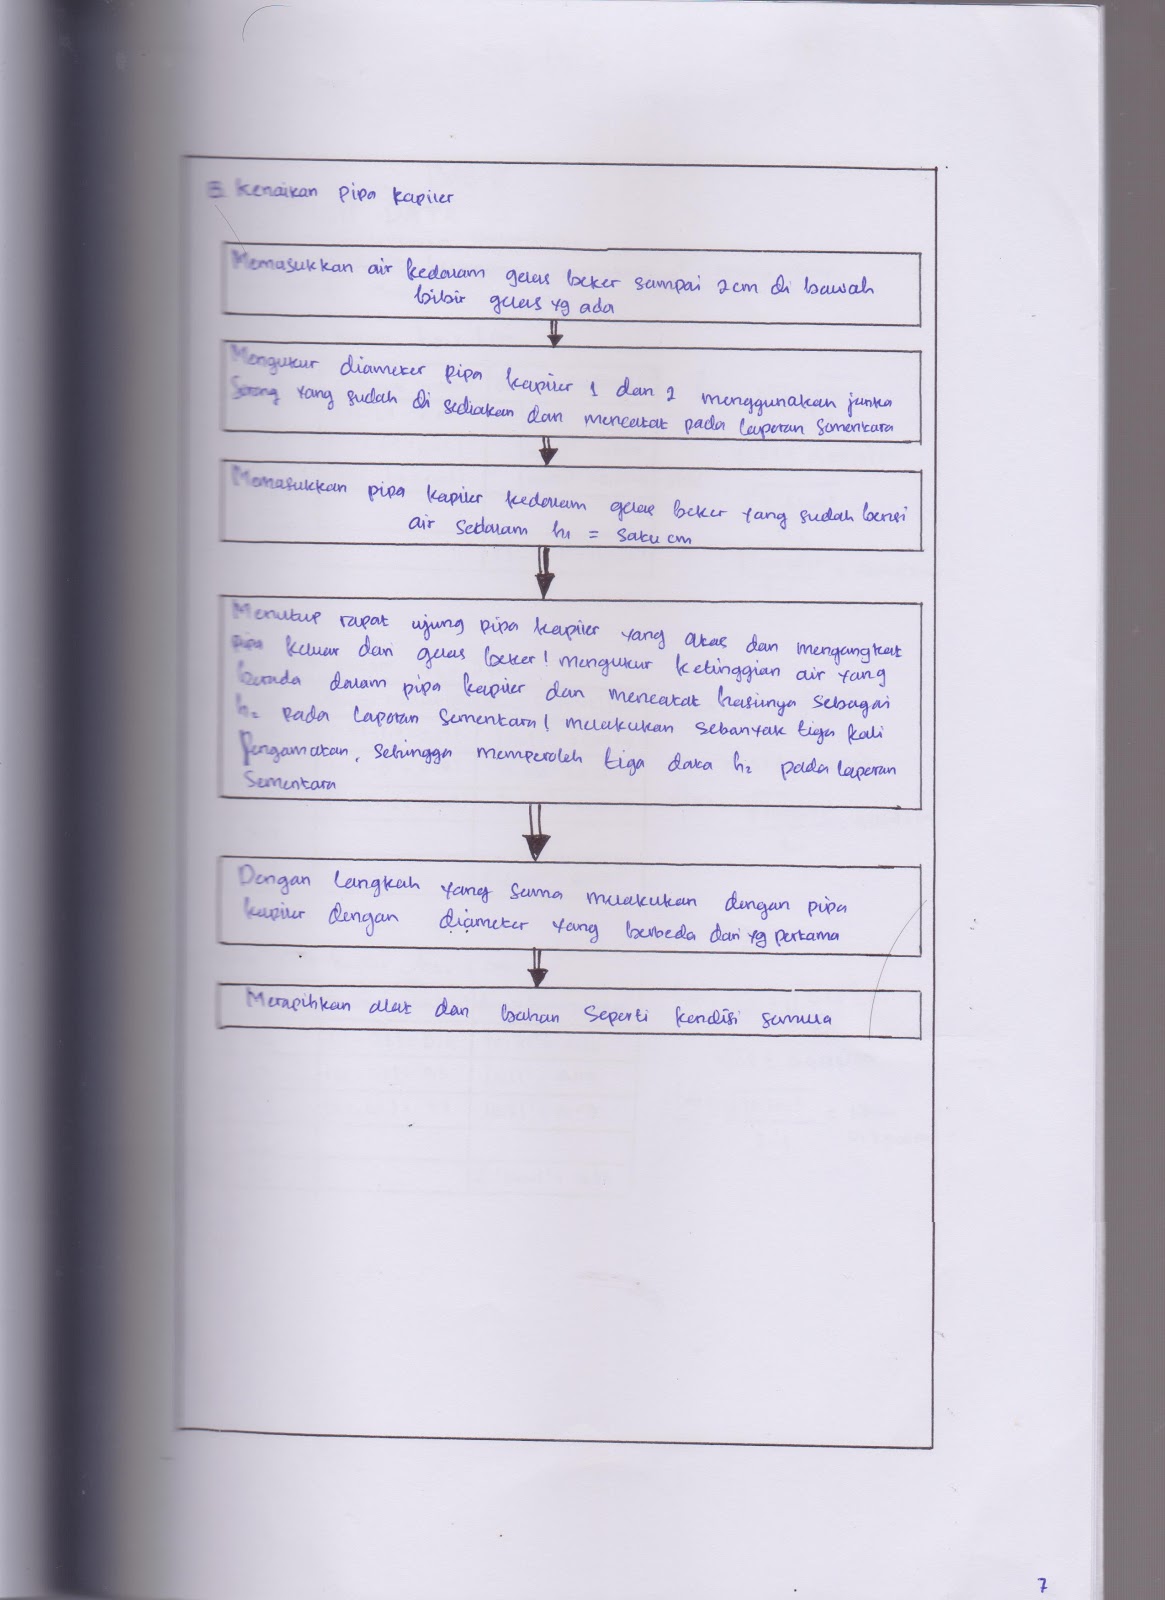 B. Kenaikan pipa kapiler
Memasukkan air kedalam gelas beker sampai 2cm di bawah
bibir gelas yg ada
Mengukur diameter pipa kapiler 1 dan 2 menggunakan janka
Sorong yang sudah di sediakan dan mencatat pada laporan sementara
Memasukkan pipa kapiler kedalam gelas beker yang sudah berisi
air sedalam h₁ = satu cm
Menutup rapat ujung pipa kapiler yang atas dan mengangkat
pipa keluar dari gelas beker! mengukur ketinggian air yang
berada dalam pipa kapiler dan mencatat hasilnya sebagai
h₂ pada laporan sementara! melakukan sebanyak tiga kali
Pengamatan, sehingga memperoleh tiga data h₂ pada laporan
Sementara
Dengan langkah yang sama melakukan dengan pipa
kapiler dengan diameter yang berbeda dari yg pertama
Merapihkan alat dan bahan seperti kondisi semula
7